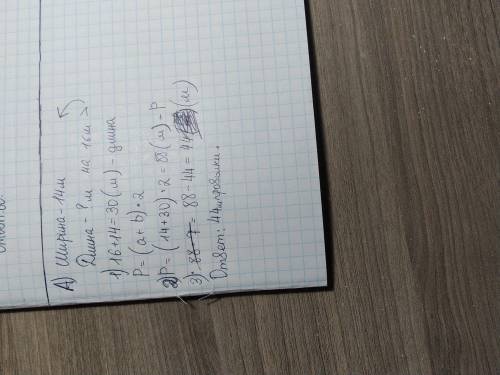 А) Ширина - 14м
Длина - ? м на 16м >
1) 16+14=30(м) - длина
P = (a + b) · 2
2) P = (14+30) · 2 = 88 (м) - P
3) 88 - 44 = 44 (м)
Ответ: 44м проволки.